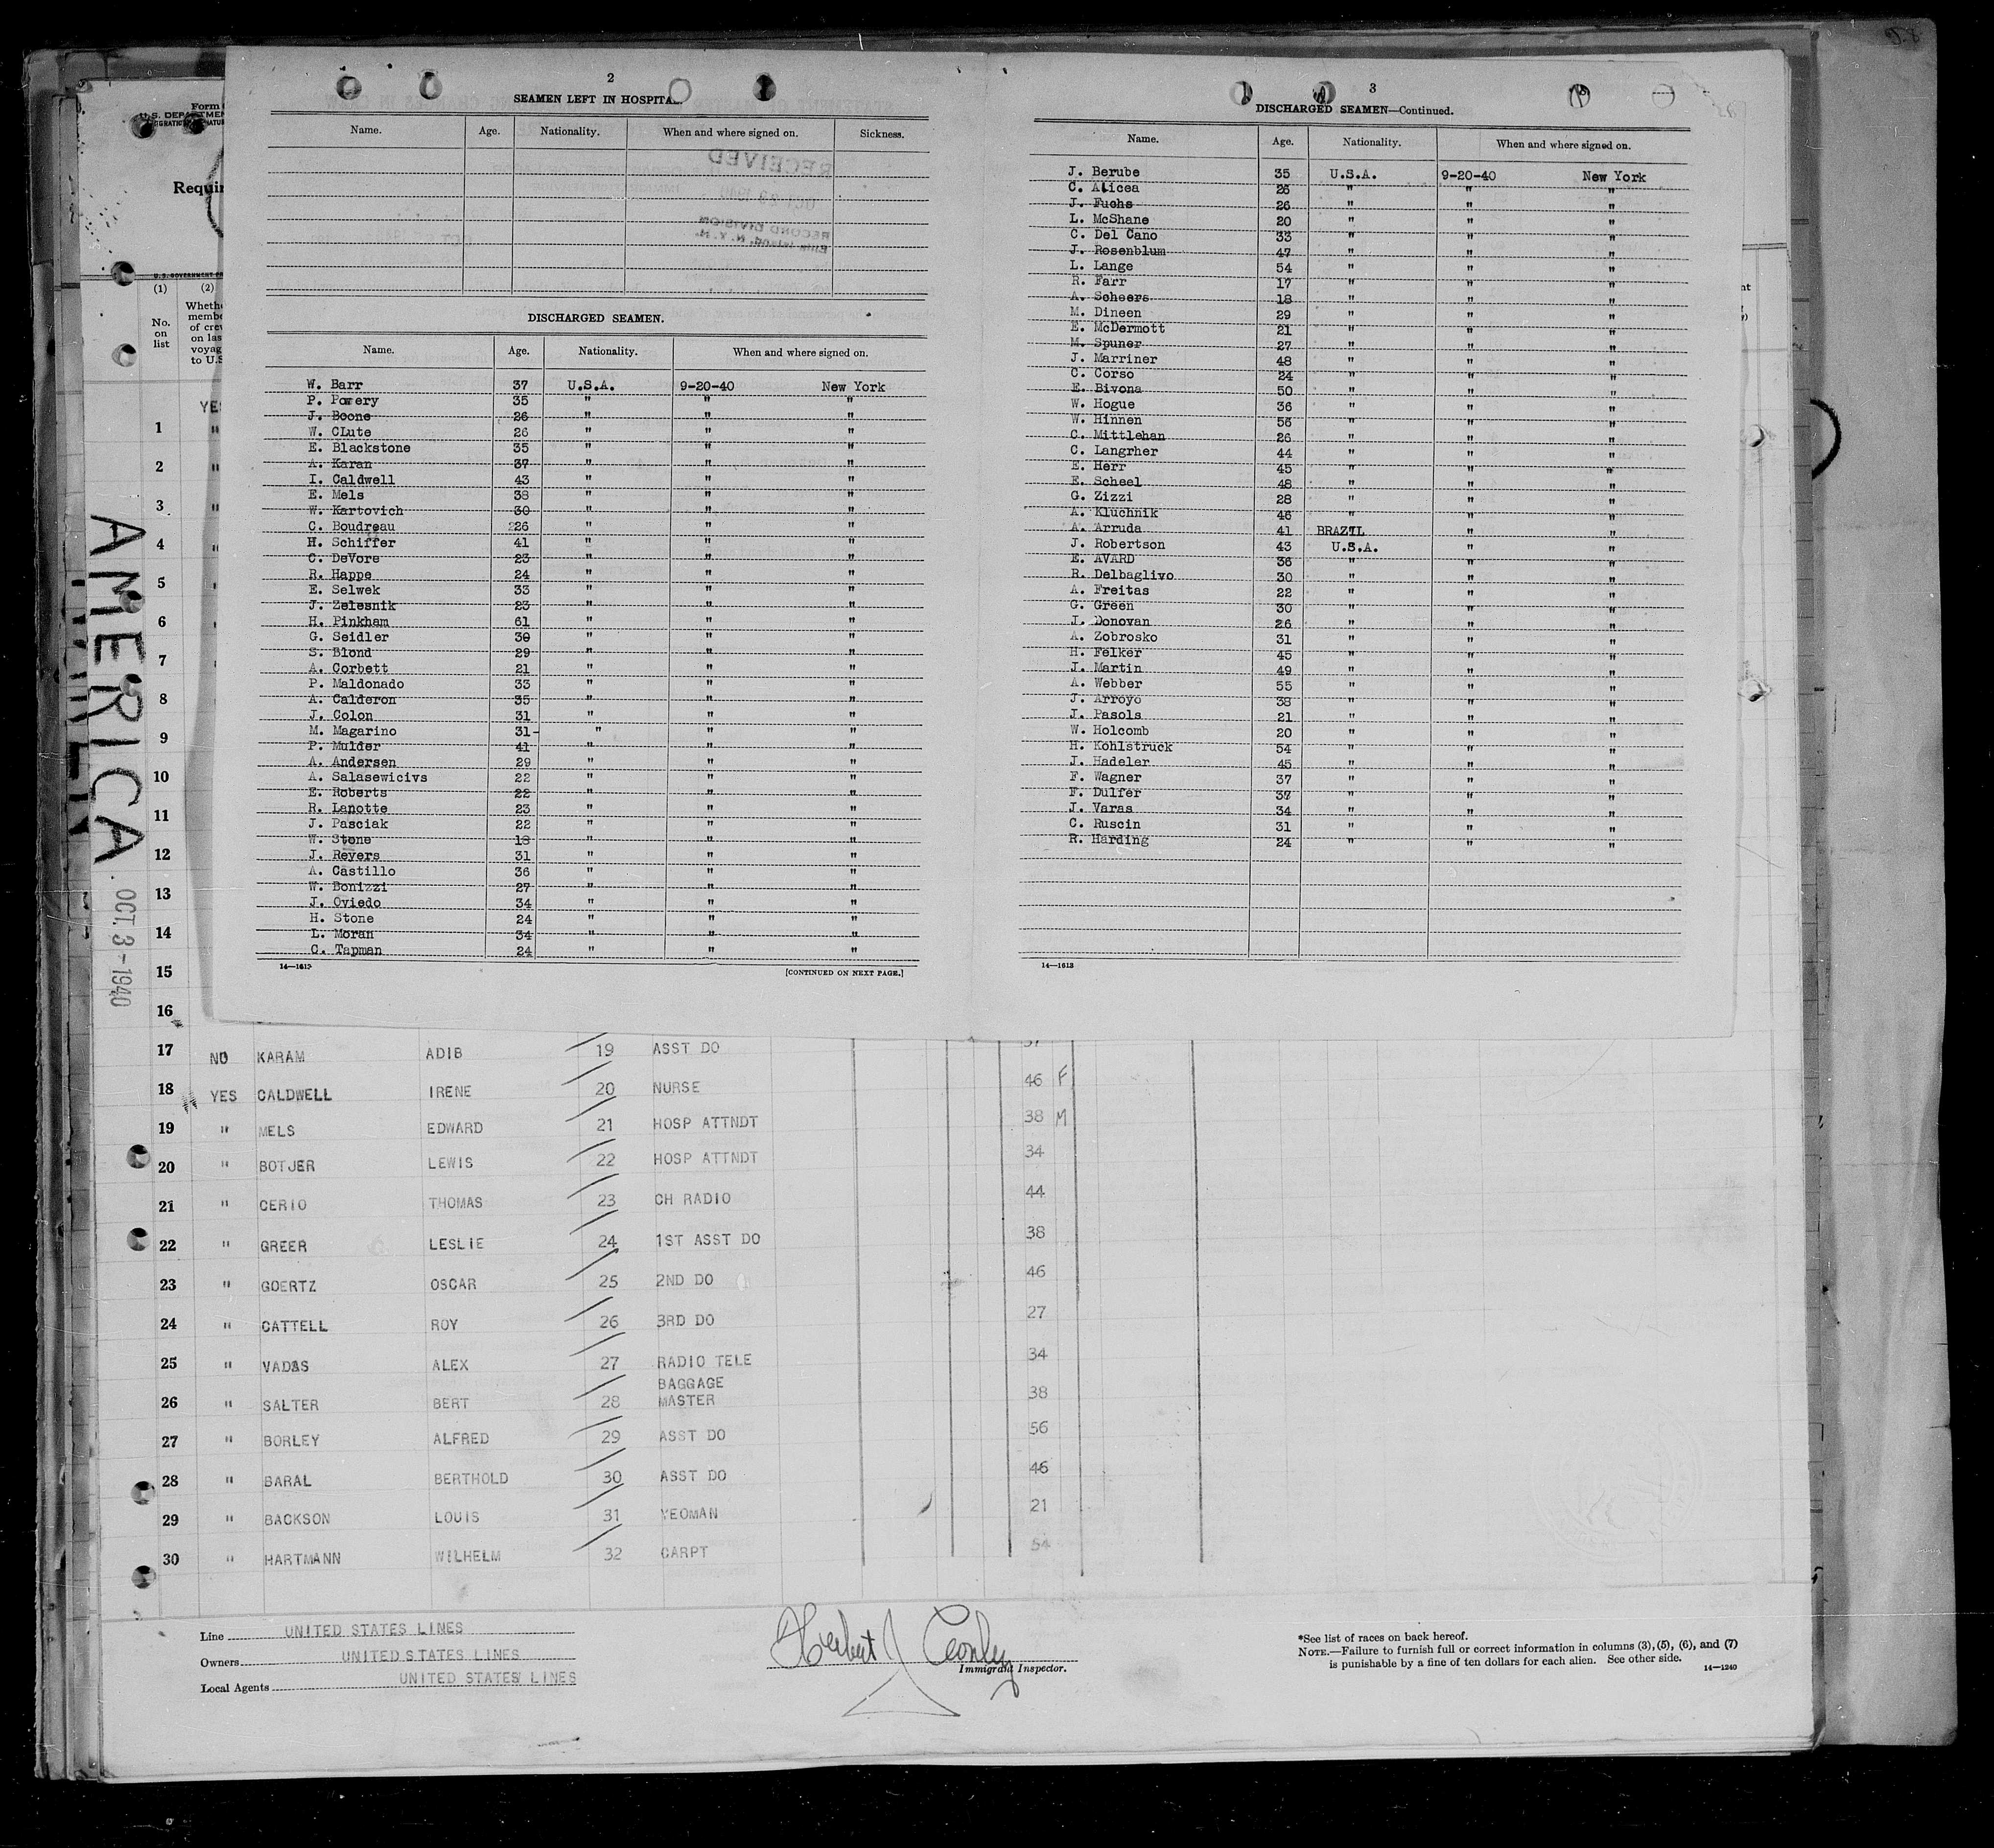 2
SEAMEN LEFT IN HOSPITAL.
Name. Age. Nationality. When and where signed on. Sickness.
RECEIVED
RECORD DIVISION
Ellis Island, N.Y.H.
DISCHARGED SEAMEN.
Name. Age. Nationality. When and where signed on.
W. Barr 37 U.S.A. 9-20-40 New York
P. Powery 35 " " "
J. Boone 26 " " "
W. CLute 26 " " "
E. Blackstone 35 " " "
A. Karan 37 " " "
I. Caldwell 43 " " "
E. Mels 38 " " "
W. Kartovich 30 " " "
C. Boudreau 26 " " "
H. Schiffer 41 " " "
C. DeVore 23 " " "
R. Happe 24 " " "
E. Selwek 33 " " "
J. Zelesnik 23 " " "
H. Pinkham 61 " " "
G. Seidler 30 " " "
S. Blond 29 " " "
A. Corbett 21 " " "
P. Maldonado 33 " " "
A. Calderon 35 " " "
J. Colon 31 " " "
M. Magarino 31- " " "
P. Mulder 41 " " "
A. Andersen 29 " " "
A. Salasewicivs 22 " " "
E. Roberts 22 " " "
R. Lanotte 23 " " "
J. Pasciak 22 " " "
W. Stone 18 " " "
J. Reyers 31 " " "
A. Castillo 36 " " "
W. Bonizzi 27 " " "
J. Oviedo 34 " " "
H. Stone 24 " " "
L. Moran 34 " " "
C. Tapman 24 " " "
14—1613 [CONTINUED ON NEXT PAGE.]
3
DISCHARGED SEAMEN—Continued.
Name. Age. Nationality. When and where signed on.
J. Berube 35 U.S.A. 9-20-40 New York
C. Alicea 25 " " "
J. Fuchs 26 " " "
L. McShane 20 " " "
C. Del Cano 33 " " "
J. Rosenblum 47 " " "
L. Lange 54 " " "
R. Farr 17 " " "
A. Scheers 18 " " "
M. Dineen 29 " " "
E. McDermott 21 " " "
M. Spuner 27 " " "
J. Marriner 48 " " "
C. Corso 24 " " "
E. Bivona 50 " " "
W. Hogue 36 " " "
W. Hinnen 56 " " "
C. Mittlehan 26 " " "
C. Langrher 44 " " "
E. Herr 45 " " "
E. Scheel 48 " " "
G. Zizzi 28 " " "
A. Kluchnik 46 " " "
A. Arruda 41 BRAZIL " "
J. Robertson 43 U.S.A. " "
E. AVARD 36 " " "
R. Delbaglivo 30 " " "
A. Freitas 22 " " "
G. Green 30 " " "
J. Donovan 26 " " "
A. Zobrosko 31 " " "
H. Felker 45 " " "
J. Martin 49 " " "
A. Webber 55 " " "
J. Arroyo 38 " " "
J. Pasols 21 " " "
W. Holcomb 20 " " "
H. Kohlstruck 54 " " "
J. Hadeler 45 " " "
F. Wagner 37 " " "
F. Dulfer 37 " " "
J. Varas 34 " " "
C. Ruscin 31 " " "
R. Harding 24 " " "
14—1613
Form
U.S. DEPARTMEN
Requir
(1) (2)
No. on list
Wheth
membe
of crew
on las
voyag
to U.S
AMERICA
OCT. 3-1940
1 YES
2 "
3 "
4 "
5
6
7
8
9
10
11
12
13
14
15
16
17 NO KARAM ADIB 19 ASST DO 37
18 YES CALDWELL IRENE 20 NURSE 46 F
19 " MELS EDWARD 21 HOSP ATTNDT 38 M
20 " BOTJER LEWIS 22 HOSP ATTNDT 34
21 " CERIO THOMAS 23 CH RADIO 44
22 " GREER LESLIE 24 1ST ASST DO 38
23 " GOERTZ OSCAR 25 2ND DO 46
24 " CATTELL ROY 26 3RD DO 27
25 " VADAS ALEX 27 RADIO TELE 34
26 " SALTER BERT 28 BAGGAGE MASTER 38
27 " BORLEY ALFRED 29 ASST DO 56
28 " BARAL BERTHOLD 30 ASST DO 46
29 " BACKSON LOUIS 31 YEOMAN 21
30 " HARTMANN WILHELM 32 CARPT 54
Line UNITED STATES LINES
Owners UNITED STATES LINES
Local Agents UNITED STATES LINES
Herbert J
Immigrant Inspector.
*See list of races on back hereof.
NOTE.—Failure to furnish full or correct information in columns (3), (5), (6), and (7)
is punishable by a fine of ten dollars for each alien. See other side.
14—1240